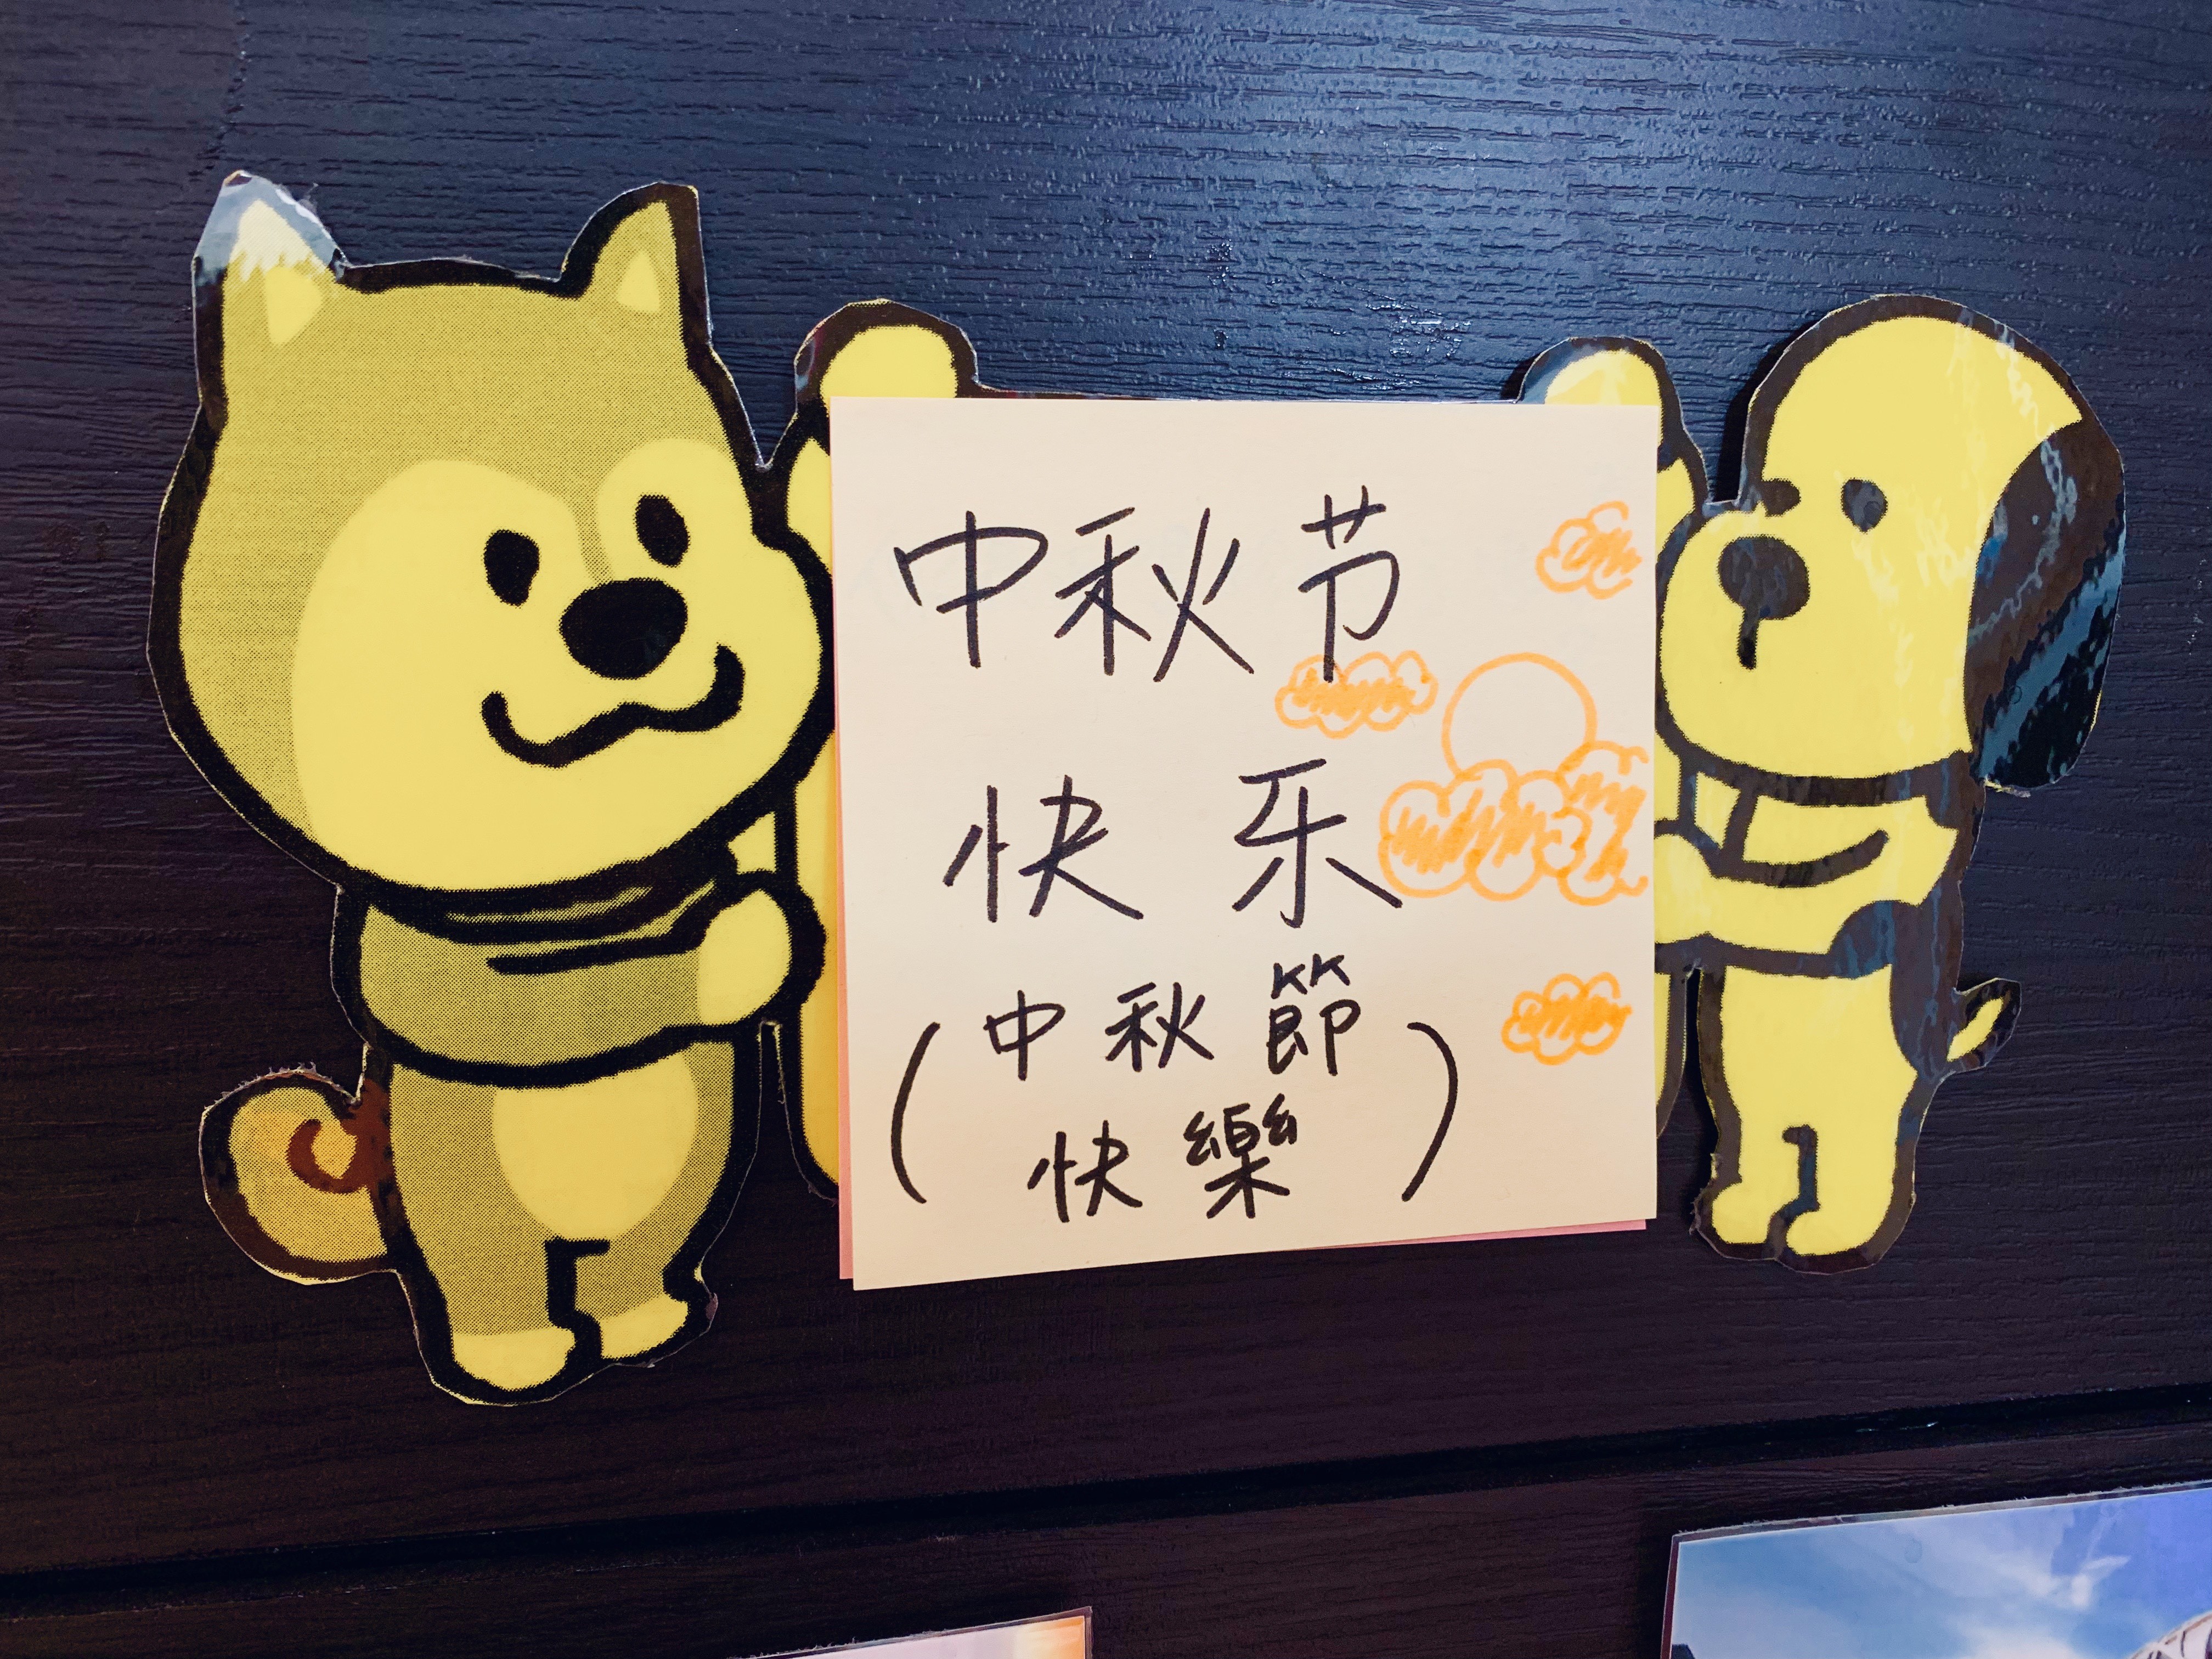 中秋节
快乐
(中秋節
快樂)